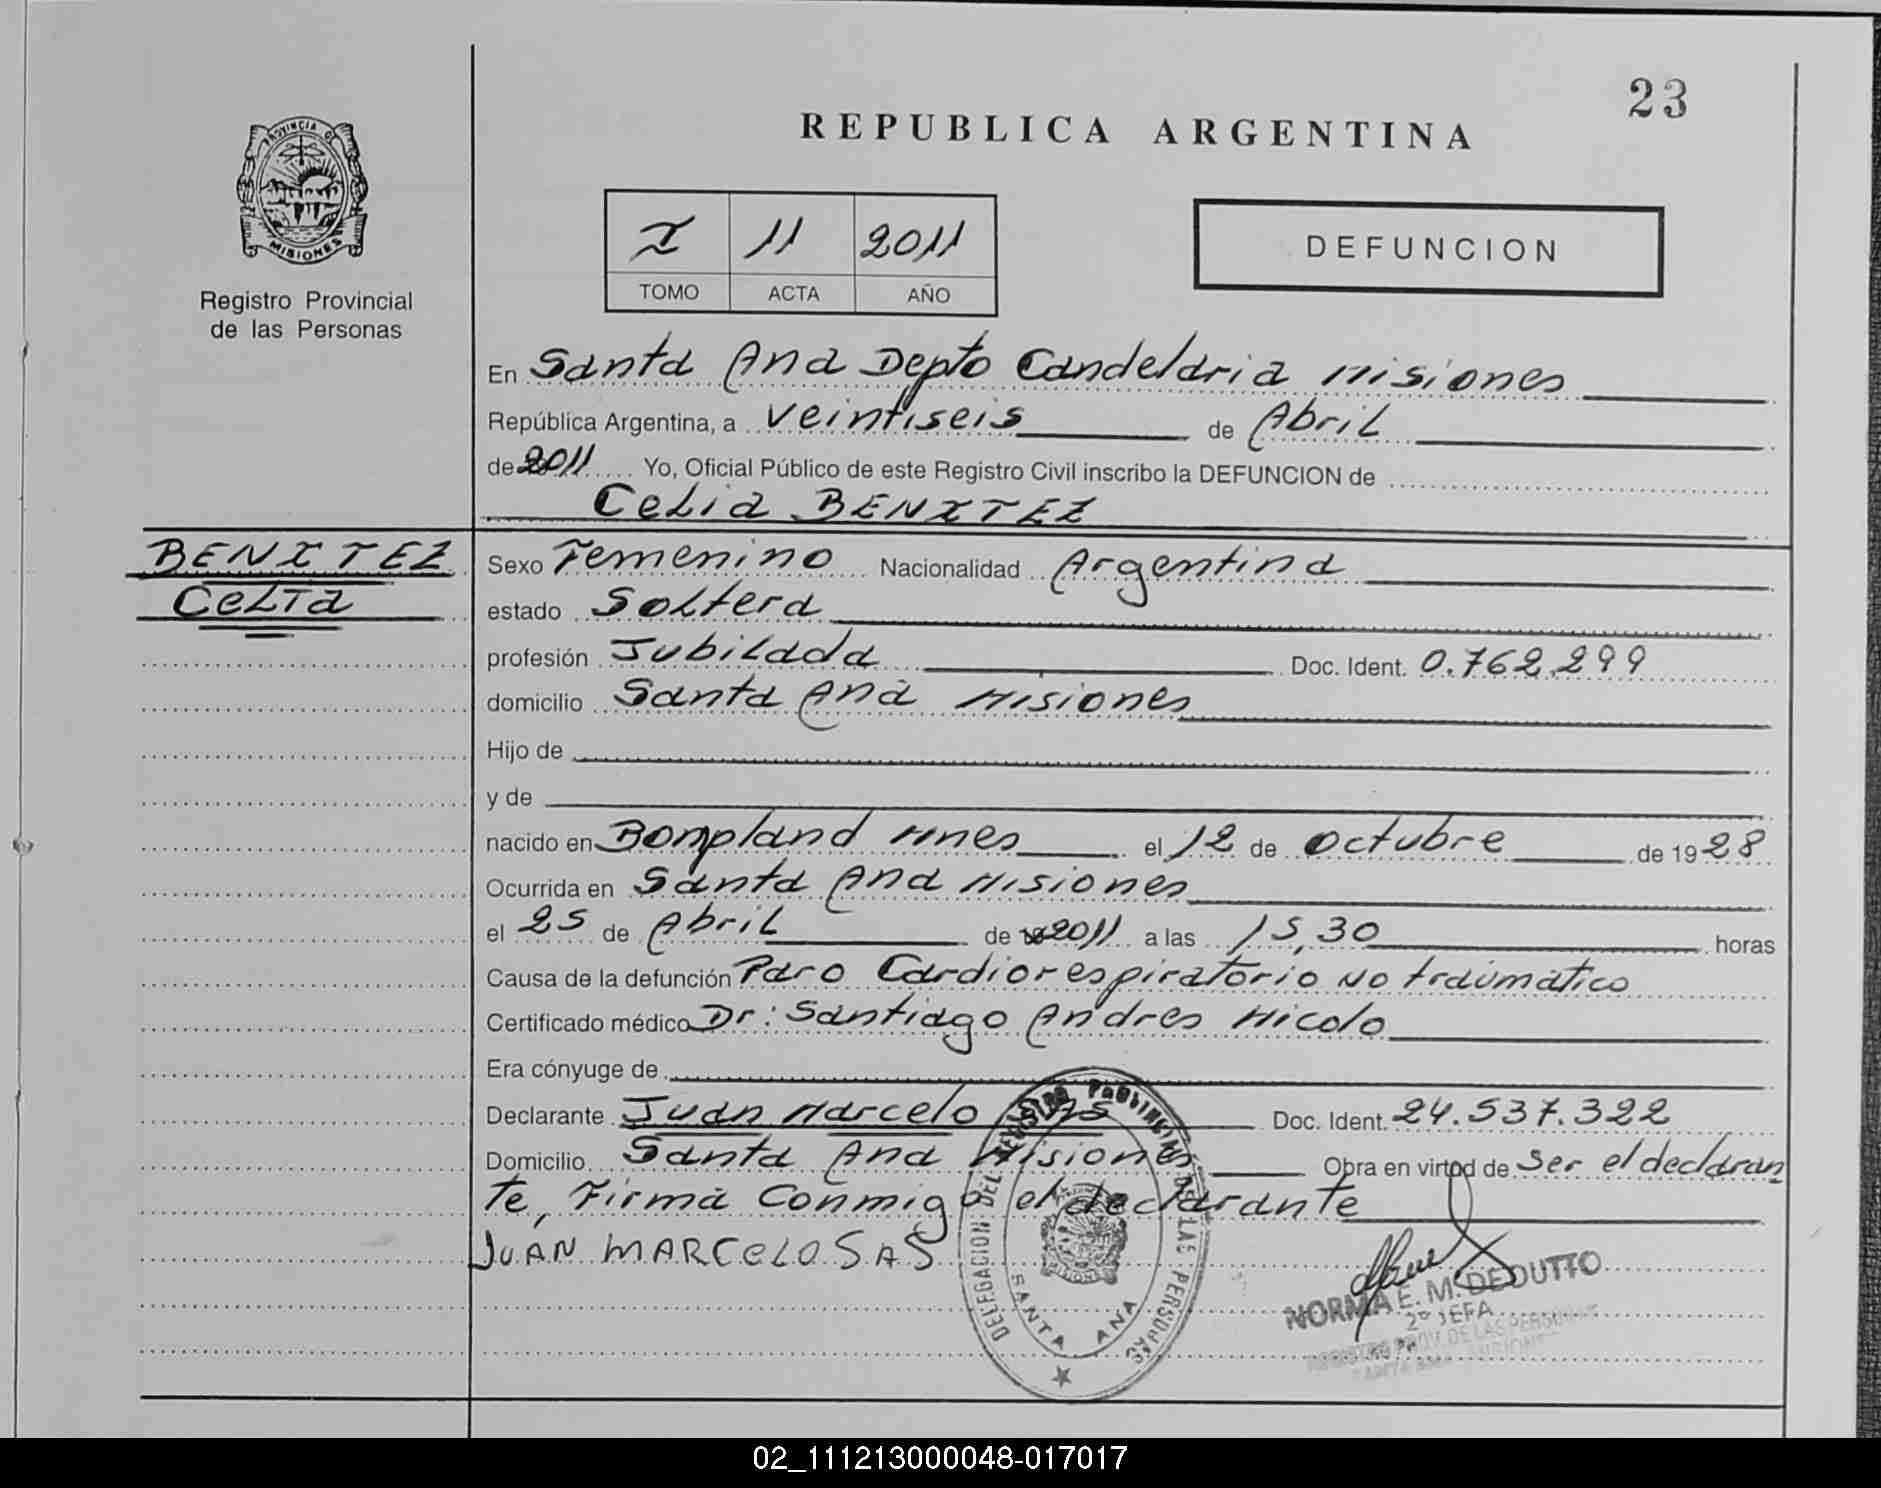 23
REPUBLICA ARGENTINA
PROVINCIA D
MISIONES
Registro Provincial
de las Personas
I 11 2011
TOMO ACTA AÑO
DEFUNCION
En Santa Ana Depto Candelaria Misiones
República Argentina, a veintiseis de Abril
de 2011 Yo, Oficial Público de este Registro Civil inscribo la DEFUNCION de
Celia BENITEZ
BENITEZ
Celia
Sexo Femenino Nacionalidad Argentina
estado Soltera
profesión Jubilada Doc. Ident. 0.762.299
domicilio Santa Ana Misiones
Hijo de
y de
nacido en Bompland Mnes el 12 de Octubre de 1928
Ocurrida en Santa Ana Misiones
el 25 de Abril de 2011 a las 15,30 horas
Causa de la defunción Paro Cardiorespiratorio no traumatico
Certificado médico Dr: Santiago Andres Nicolo
Era cónyuge de
Declarante Juan Marcelo SAS Doc. Ident. 24.537.322
Domicilio Santa Ana Misiones Obra en virtud de Ser el declaran
te, Firma Conmigo el declarante
JUAN MARCELO SAS
DELEGACION DEL REGISTRO PROVINCIAL DE LAS PERSONAS
SANTA ANA
MISIONES
NORMA E. M. DEDUTTO
2º JEFA
REGISTRO PROV. DE LAS PERSONAS
02_111213000048-017017